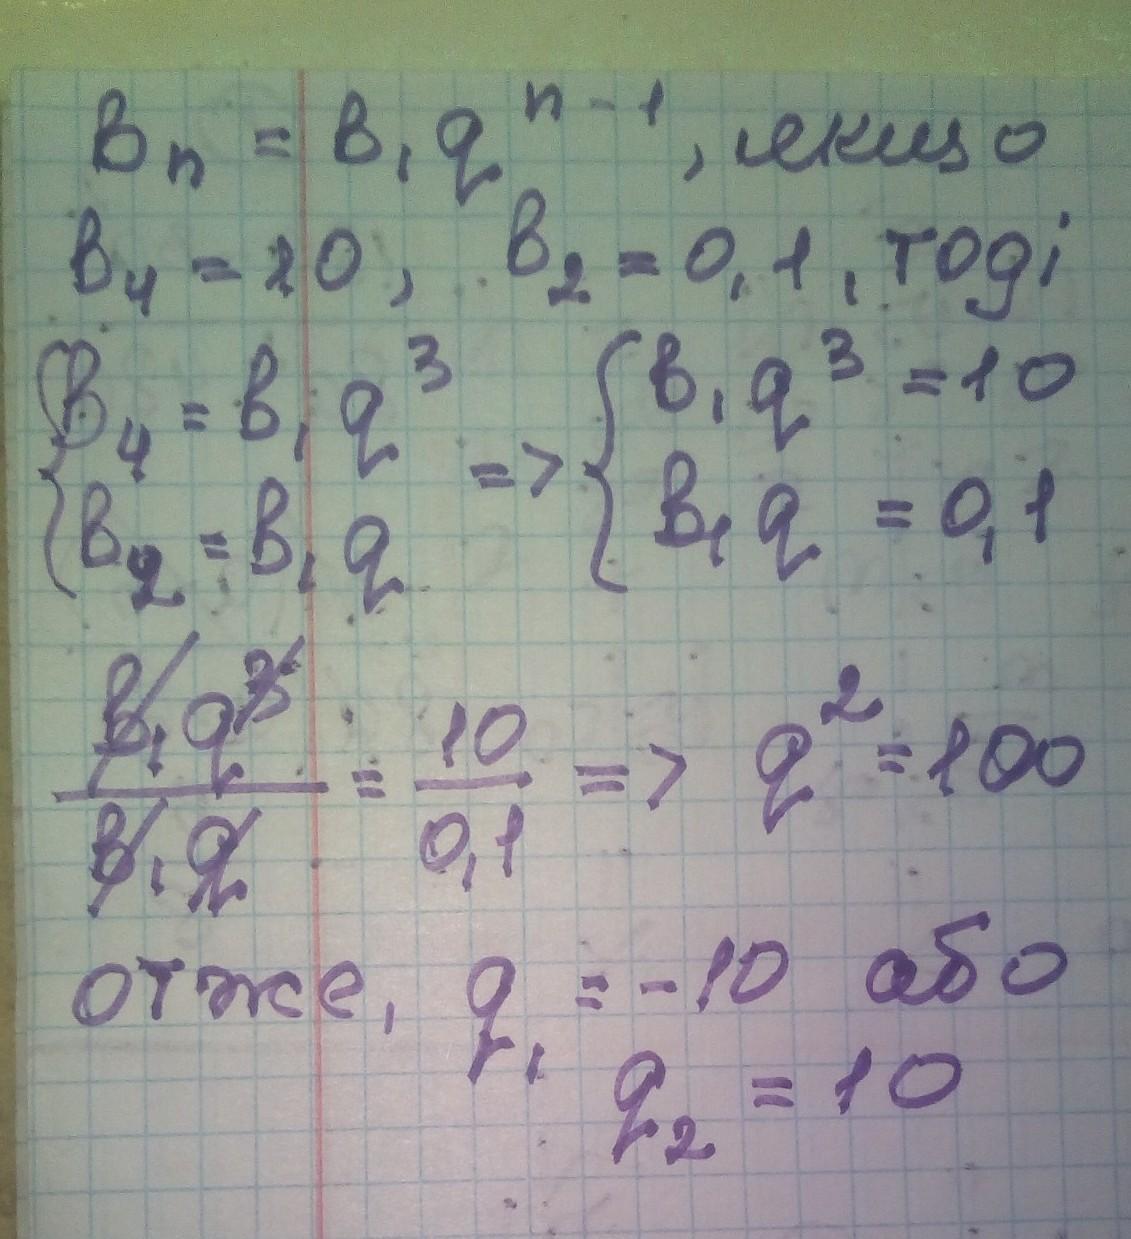 Bn = B₁qⁿ⁻¹, якщо
B₄ = 10, B₂ = 0,1, тоді
{B₄ = B₁q³ => {B₁q³ = 10
{B₂ = B₁q {B₁q = 0,1
B₁q³/B₁q = 10/0,1 => q² = 100
отже, q₁ = -10 або
q₂ = 10